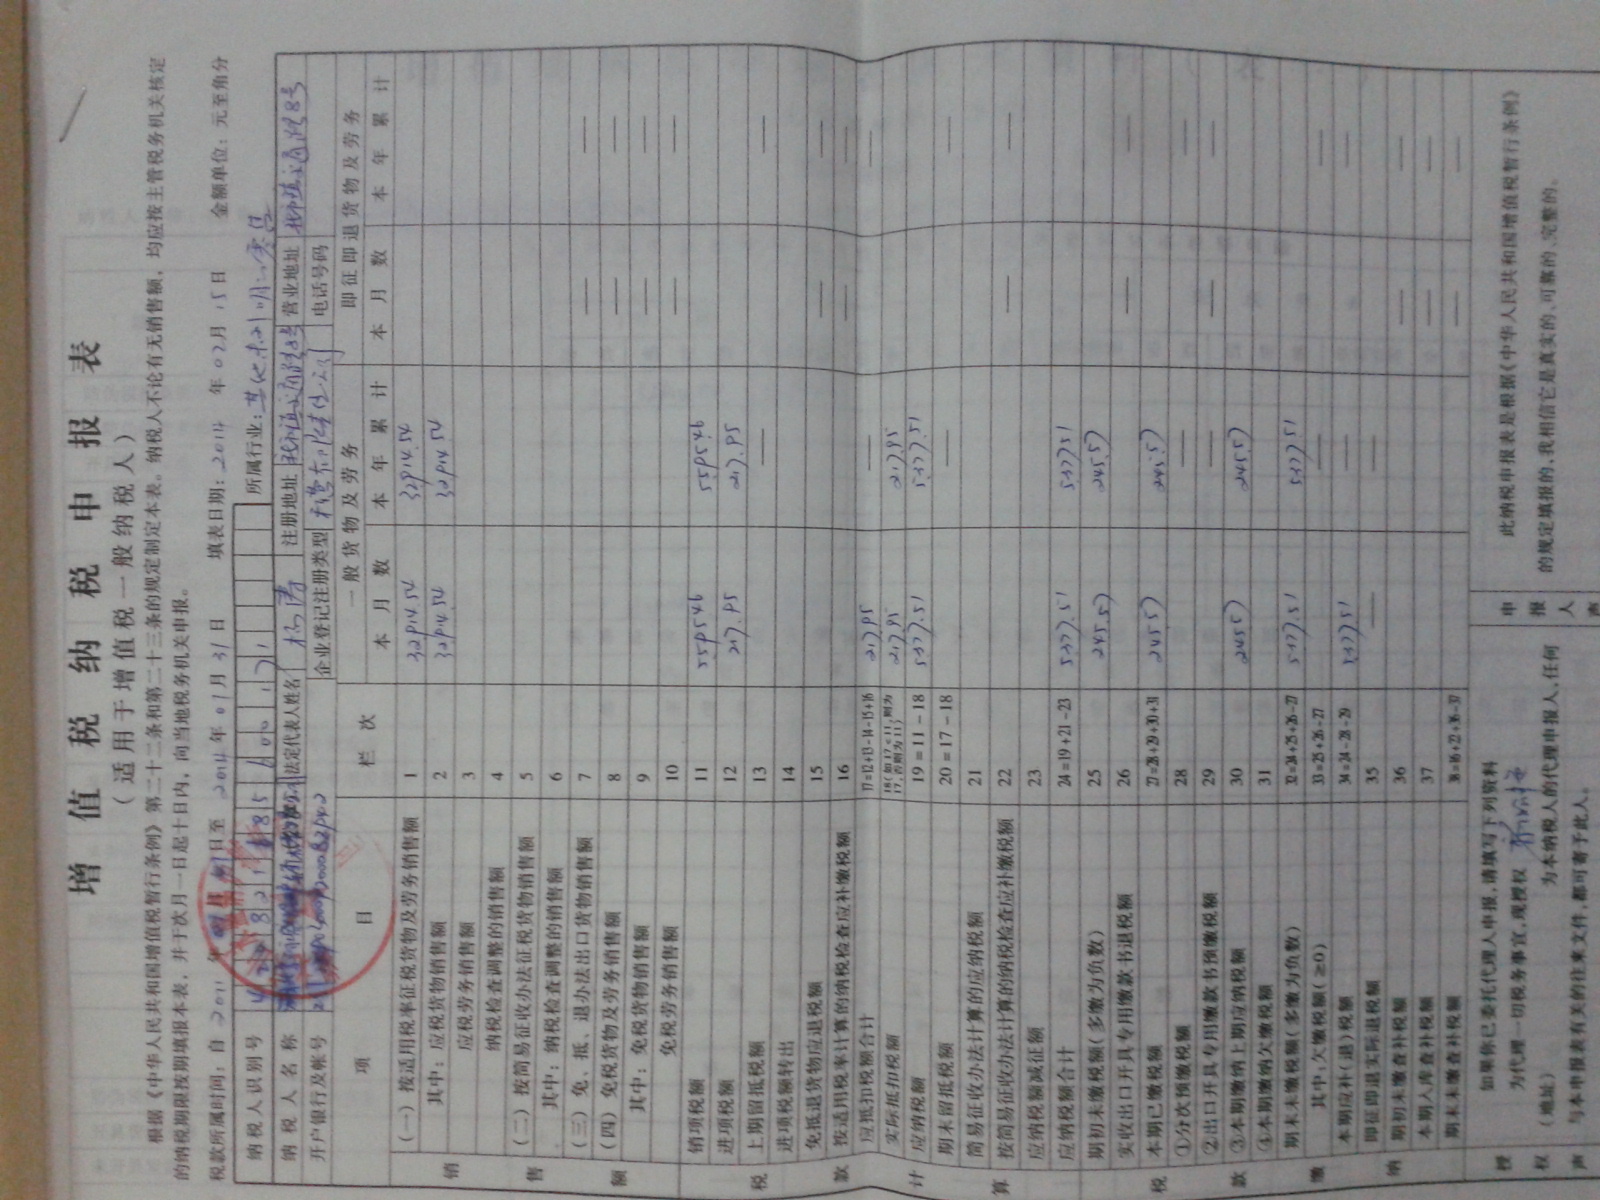 增值税纳税申报表
（适用于增值税一般纳税人）
根据《中华人民共和国增值税暂行条例》第二十二条和第二十三条的规定制定本表。纳税人不论有无销售额，均应按主管税务机关核定
的纳税期限按期填报本表，并于次月一日起十日内，向当地税务机关申报。
税款所属时间：自 年 日至 2014 年 01 月 31 日 填表日期：2014 年 02 月 15 日 金额单位：元至角分
纳税人识别号 所属行业：
纳税人名称 法定代表人姓名 注册地址 营业地址
开户银行及帐号 企业登记注册类型 电话号码
项 目 栏 次 一般货物及劳务 即征即退货物及劳务
本 月 数 本 年 累 计 本 月 数 本 年 累 计
销售额
（一）按适用税率征税货物及劳务销售额 1 32914.54 32914.54
其中：应税货物销售额 2 32914.54 32914.54
应税劳务销售额 3
纳税检查调整的销售额 4
（二）按简易征收办法征税货物销售额 5
其中：纳税检查调整的销售额 6
（三）免、抵、退办法出口货物销售额 7 — —
（四）免税货物及劳务销售额 8 — —
其中：免税货物销售额 9 — —
免税劳务销售额 10 — —
税款计算
销项税额 11 5595.46 5595.46
进项税额 12 217.95 217.95
上期留抵税额 13 — —
进项税额转出 14
免抵退货物应退税额 15 — —
按适用税率计算的纳税检查应补缴税额 16 — —
应抵扣税额合计 17=12+13-14-15+16 217.95 — —
实际抵扣税额 18（如17<11，则为17，否则为11） 217.95 217.95
应纳税额 19=11-18 5377.51 5377.51
期末留抵税额 20=17-18 — —
简易征收办法计算的应纳税额 21
按简易征收办法计算的纳税检查应补缴税额 22 — —
应纳税额减征额 23
应纳税额合计 24=19+21-23 5377.51 5377.51
税款缴纳
期初未缴税额（多缴为负数） 25 245.57 245.57
实收出口开具专用缴款书退税额 26 — —
本期已缴税额 27=28+29+30+31 245.57 245.57
①分次预缴税额 28 — —
②出口开具专用缴款书预缴税额 29 — — —
③本期缴纳上期应纳税额 30 245.57 245.57
④本期缴纳欠缴税额 31
期末未缴税额（多缴为负数） 32=24+25+26-27 5377.51 5377.51
其中：欠缴税额（≥0） 33=25+26-27 — —
本期应补（退）税额 34=24-28-29 5377.51 — —
即征即退实际退税额 35 — —
期初未缴查补税额 36 — —
本期入库查补税额 37 — —
期末未缴查补税额 38=16+22+36-37 — —
授权声
如果你已委托代理人申报，请填写下列资料
为代理一切税务事宜，现授权
（地址） 为本纳税人的代理申报人，任何
与本申报表有关的往来文件，都可寄予此人。
申报人声
此纳税申报表是根据《中华人民共和国增值税暂行条例》
的规定填报的，我相信它是真实的、可靠的、完整的。